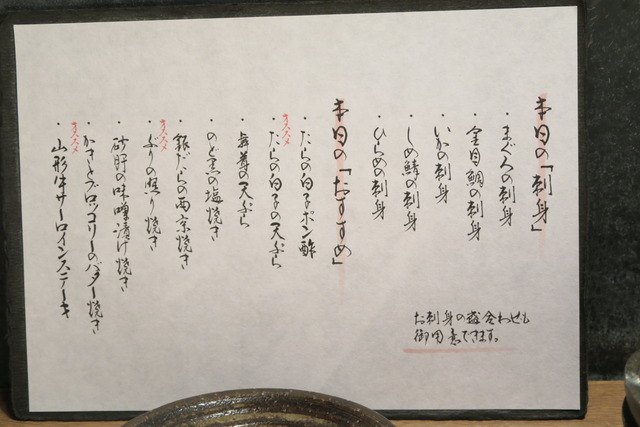 本日の「刺身」
・まぐろの刺身
・金目鯛の刺身
・いかの刺身
・しめ鯖の刺身
・ひらめの刺身
お刺身の盛合わせも
御用意できます。
本日の「おすすめ」
オススメ
・たらの白子ポン酢
・たらの白子の天ぷら
・舞茸の天ぷら
・のど黒の塩焼き
・銀だらの西京焼き
オススメ
・ぶりの照り焼き
・砂肝の味噌漬け焼き
・かきとブロッコリーのバター焼き
オススメ
・山形牛サーロインステーキ